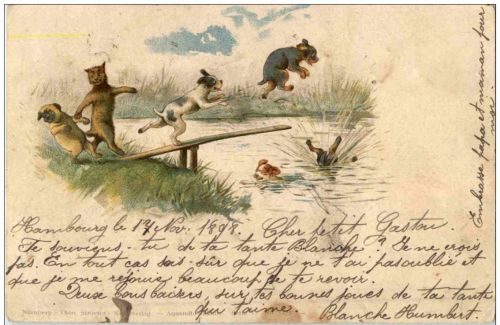 Hambourg le 17 Nov. 1898. Cher petit Gaston.
Te souviens-tu de ta tante Blanche? Je ne crois
pas. En tout cas sais-sûr que je ne t'ai pas oublié et
que je me réjouis beaucoup de te revoir.
Deux bons baisers sur tes bonnes joues de ta tante
qui t'aime. Blanche Humbert.
Embrasse papa et maman pour
moi.
Nürnberg - Theo